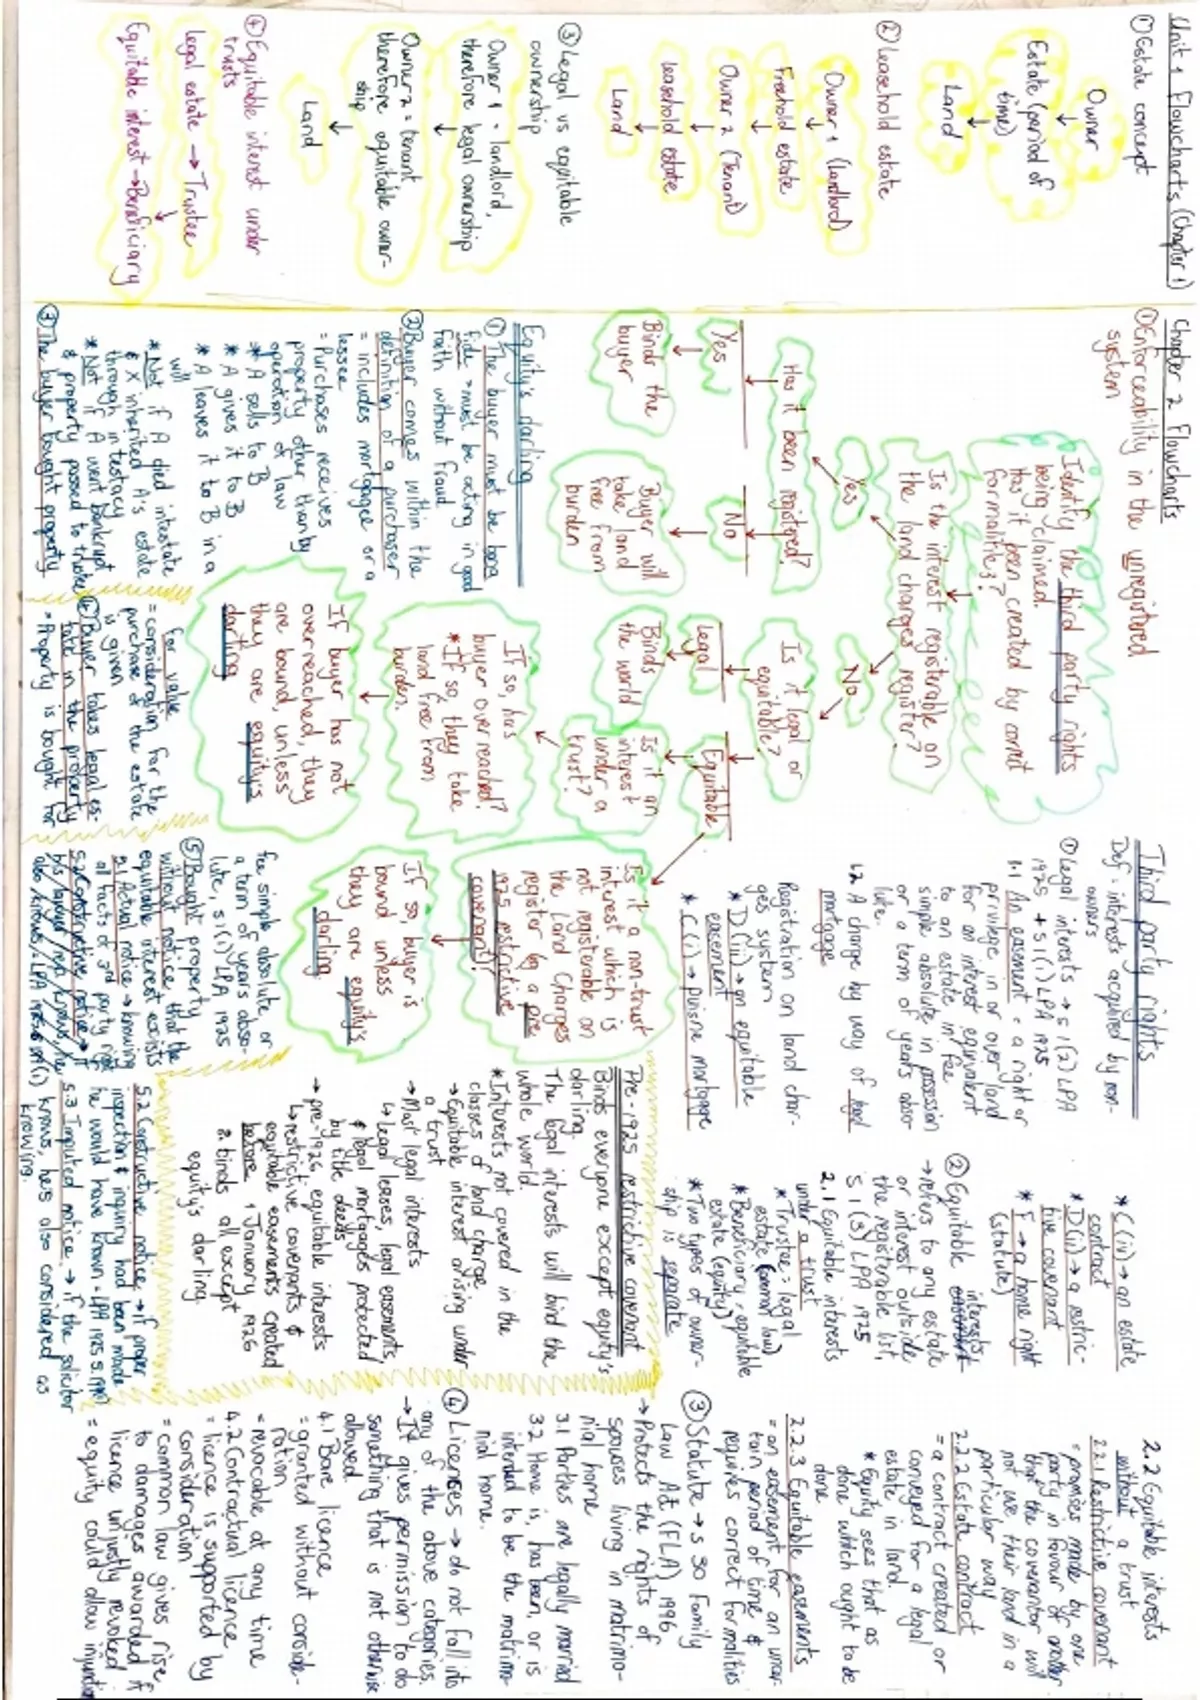 Unit 1 Flowcharts (Chapter 1)
① Estate concept
Owner
Estate (period of
time)
Land
② Leasehold estate
Owner 1 (landlord)
Freehold estate
Owner 2 (Tenant)
Leasehold estate
Land
③ Legal vs equitable
ownership
Owner 1 = landlord,
therefore legal ownership
Owner 2 = tenant
therefore equitable owner-
ship
Land
④ Equitable interest under
trusts
Legal estate → Trustee
Equitable interest → Beneficiary
Chapter 2 Flowcharts
① Enforceability in the unregistered
system
Identify the third party rights
being claimed.
Has it been created by correct
formalities?
Is the interest registerable on
the land charges register?
Yes
No
Has it been registered?
Yes
No
Binds the
buyer
Buyer will
take land
free from
burden
Is it legal or
equitable?
Legal
Equitable
Binds
the world
Is it an
interest
under a
trust?
If so, has
buyer overreached?
* If so, they take
land free from
burden.
If buyer has not
overreached, they
are bound, unless
they are equity's
darling
Is it a non-trust
interest which is
not registerable on
the Land Charges
register (eg a pre
1925 restrictive
covenant)?
If so, buyer is
bound unless
they are equity's
darling.
Equity's darling
① The buyer must be bona
fide = must be acting in good
faith without fraud
② Buyer comes within the
definition of a purchaser
= includes mortgagee or a
lessee
= Purchases receives
property other than by
operation of law
* A sells to B
* A gives it to B
* A leaves it to B in a
will
* Not if A died intestate
& X inherited A's estate
through intestacy
* Not if A went bankrupt
& property passed to trustee
③ The buyer bought property
for value
= consideration for the
purchase of the estate
is given
④ Buyer takes legal es-
tate in the property
= Property is bought for
fee simple absolute, or
a term of years abso-
lute, s1(1) LPA 1925
⑤ Bought property
without notice that the
equitable interest exists
5.1 Actual notice → knowing
all facts of 3rd party right
5.2 Constructive notice → if
5.2 Constructive notice → if proper
inspection & inquiry had been made
he would have known = LPA 1925 s.199(1)
5.3 Imputed notice → if the solicitor
knows, he's also considered as
knowing.
Third party rights
Def: interests acquired by non-
owners
① Legal interests → s1(2) LPA
1925 + s1(1) LPA 1925
1.1 An easement = a right or
privilege in or over land
for an interest equivalent
to an estate in fee
simple absolute in possession
or a term of years abso-
lute.
1.2 A charge by way of legal
mortgage
Registration on land char-
ges system
* D(iii) → an equitable
easement
* C(i) → puisne mortgage
* C(iv) → an estate
contract
* D(ii) → a restric-
tive covenant
* F → a home right
(statute)
② Equitable interests
→ refers to any estate
or interest outside
the registerable list,
s1(3) LPA 1925
2.1 Equitable interests
under a trust
* Trustee = legal
estate (common law)
* Beneficiary = equitable
estate (equity)
* Two types of owner-
ship is separate
Pre-1925 restrictive covenant
Binds everyone except equity's
darling.
The legal interests will bind the
whole world.
* Interests not covered in the
classes of land charge
→ Equitable interest arising under
a trust
→ Most legal interests
↳ legal leases, legal easements,
& legal mortgages protected
by title deeds
→ pre-1926 equitable interests
↳ restrictive covenants &
equitable easements created
before 1 January 1926
& binds all except
equity's darling.
2.2 Equitable interests
without a trust
2.2.1 Restrictive covenant
= promises made by one
party in favour of another
that the covenantor will
not use their land in a
particular way
2.2.2 Estate contract
= a contract created or
conveyed for a legal
estate in land.
* Equity sees that as
done which ought to be
done
2.2.3 Equitable easements
= an easement for an uncer-
tain period of time &
requires correct formalities
③ Statute → s 30 Family
Law Act (FLA) 1996
→ Protects the rights of
spouses living in matrimo-
nial home
3.1 Parties are legally married
3.2 Home is, has been, or is
intended to be the matrimo-
nial home.
④ Licences → do not fall into
any of the above categories.
→ It gives permission to do
something that is not otherwise
allowed
4.1 Bare licence
= granted without conside-
ration
= revocable at any time
4.2 Contractual licence
= licence is supported by
consideration
= common law gives rise
to damages awarded if
licence unjustly revoked
= equity could allow injunction